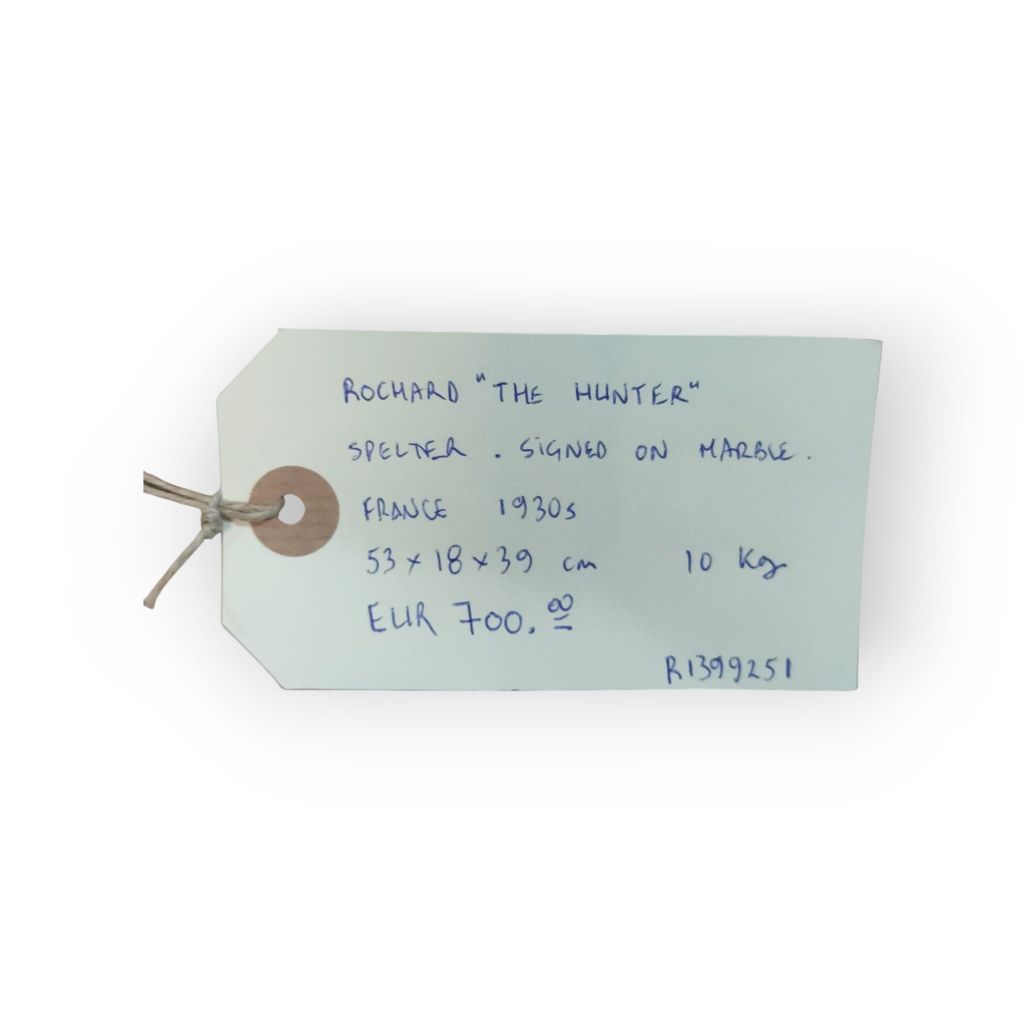 ROCHARD "THE HUNTER"
SPELTER. SIGNED ON MARBLE.
FRANCE 1930s
53 x 18 x 39 cm 10 Kg
EUR 700.00
R1399251